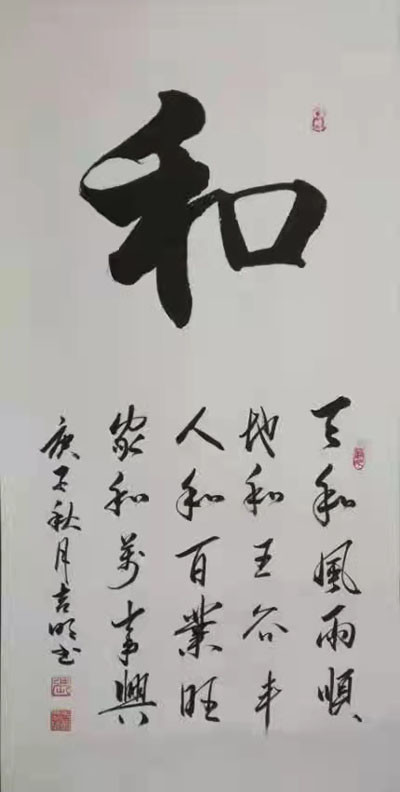 和
天和風雨順
地和五谷丰
人和百業旺
家和萬事興
庚子秋月吉明书